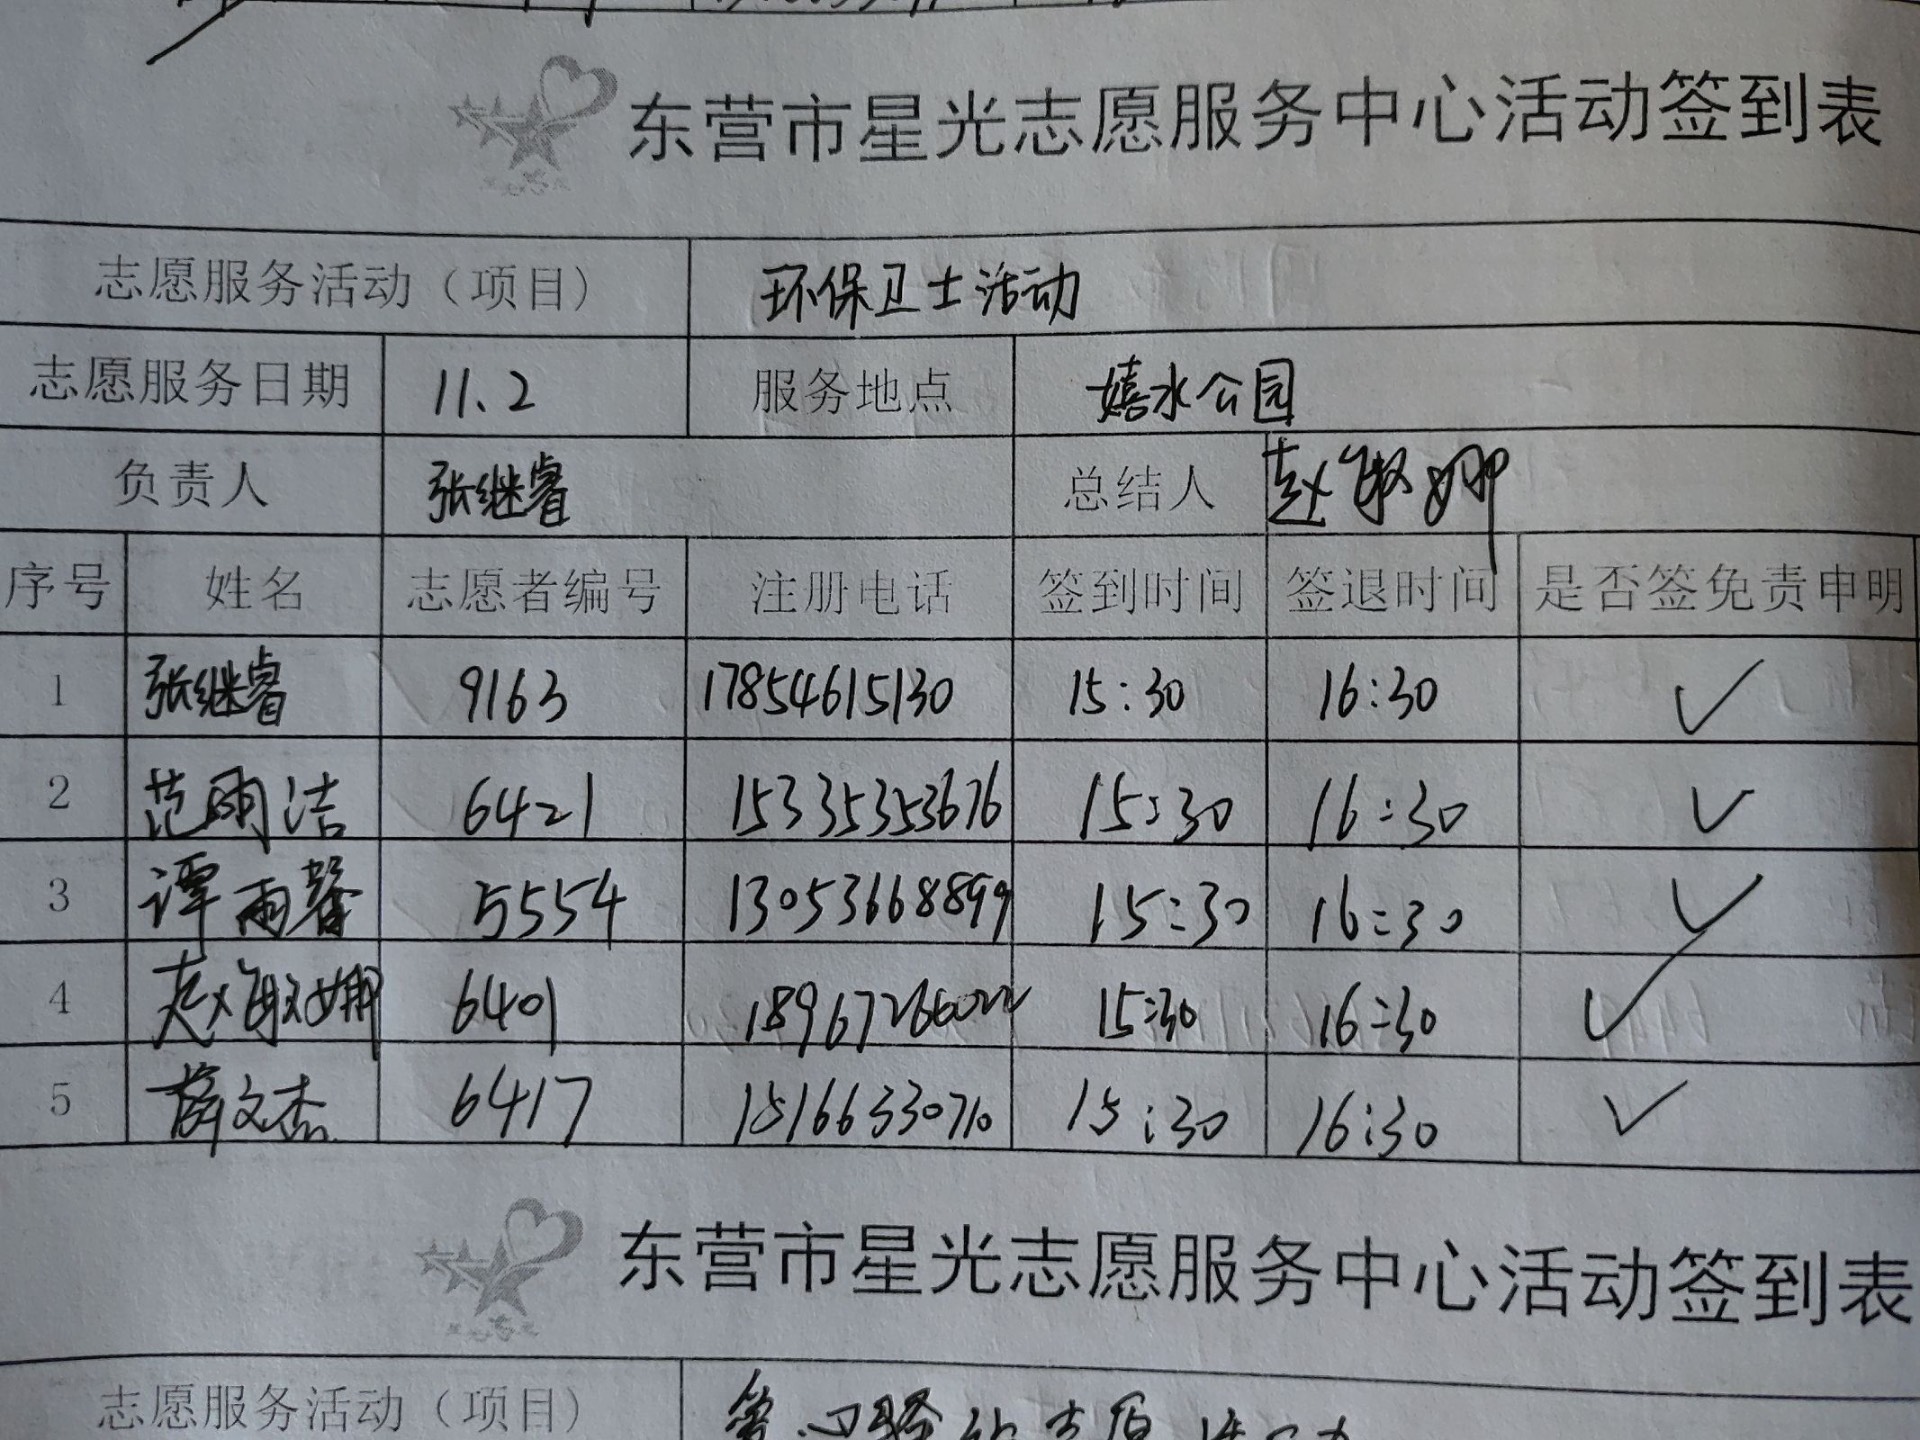 东营市星光志愿服务中心活动签到表
志愿服务活动（项目） 环保卫士活动
志愿服务日期 11.2 服务地点 嬉水公园
负责人 张继睿 总结人 赵敏娜
序号 姓名 志愿者编号 注册电话 签到时间 签退时间 是否签免责申明
1 张继睿 9163 17854615130 15:30 16:30 ✓
2 范雨洁 6421 15335353676 15:30 16:30 ✓
3 谭雨馨 5554 13053668899 15:30 16:30 ✓
4 赵敏娜 6401 15:30 16:30 ✓
5 薛文杰 6417 15166330710 15:30 16:30 ✓
东营市星光志愿服务中心活动签到表
志愿服务活动（项目）